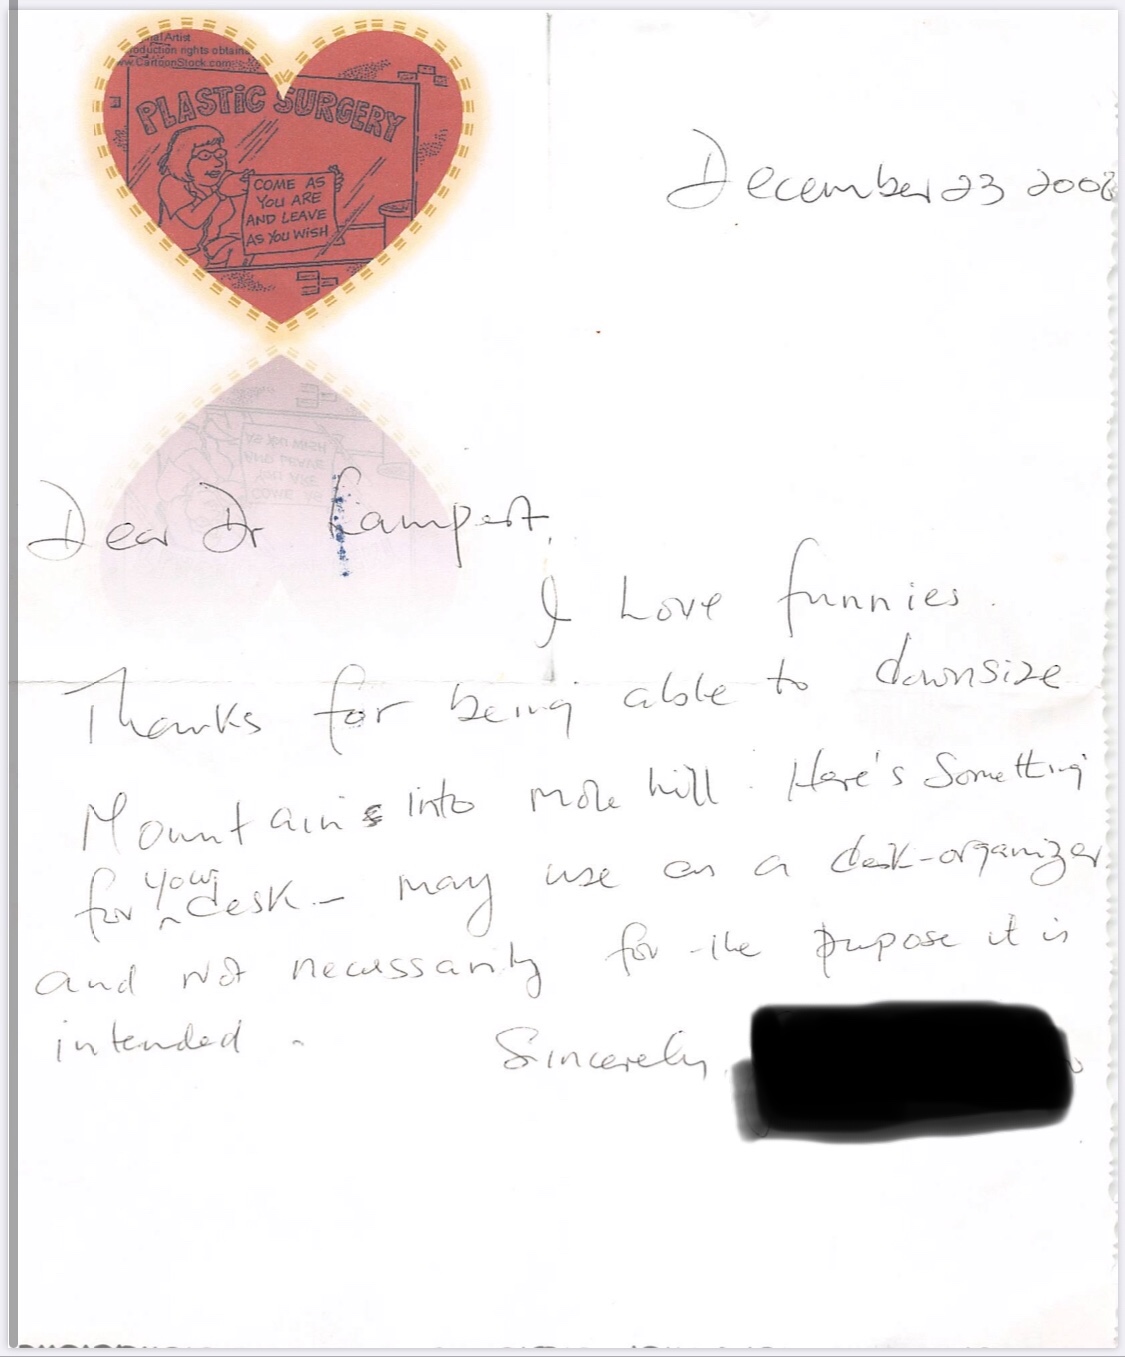 al Artist
oduction rights obtain
w.CartoonStock.com
PLASTIC SURGERY
COME AS
YOU ARE
AND LEAVE
AS YOU WISH
December 23 2008
Dear Dr Lampert,
I Love funnies.
Thanks for being able to downsize
Mountains into mole hill. Here's Something
for your desk - may use as a desk-organizer
and not necessarily for the pupose it is
intended.
Sincerely,